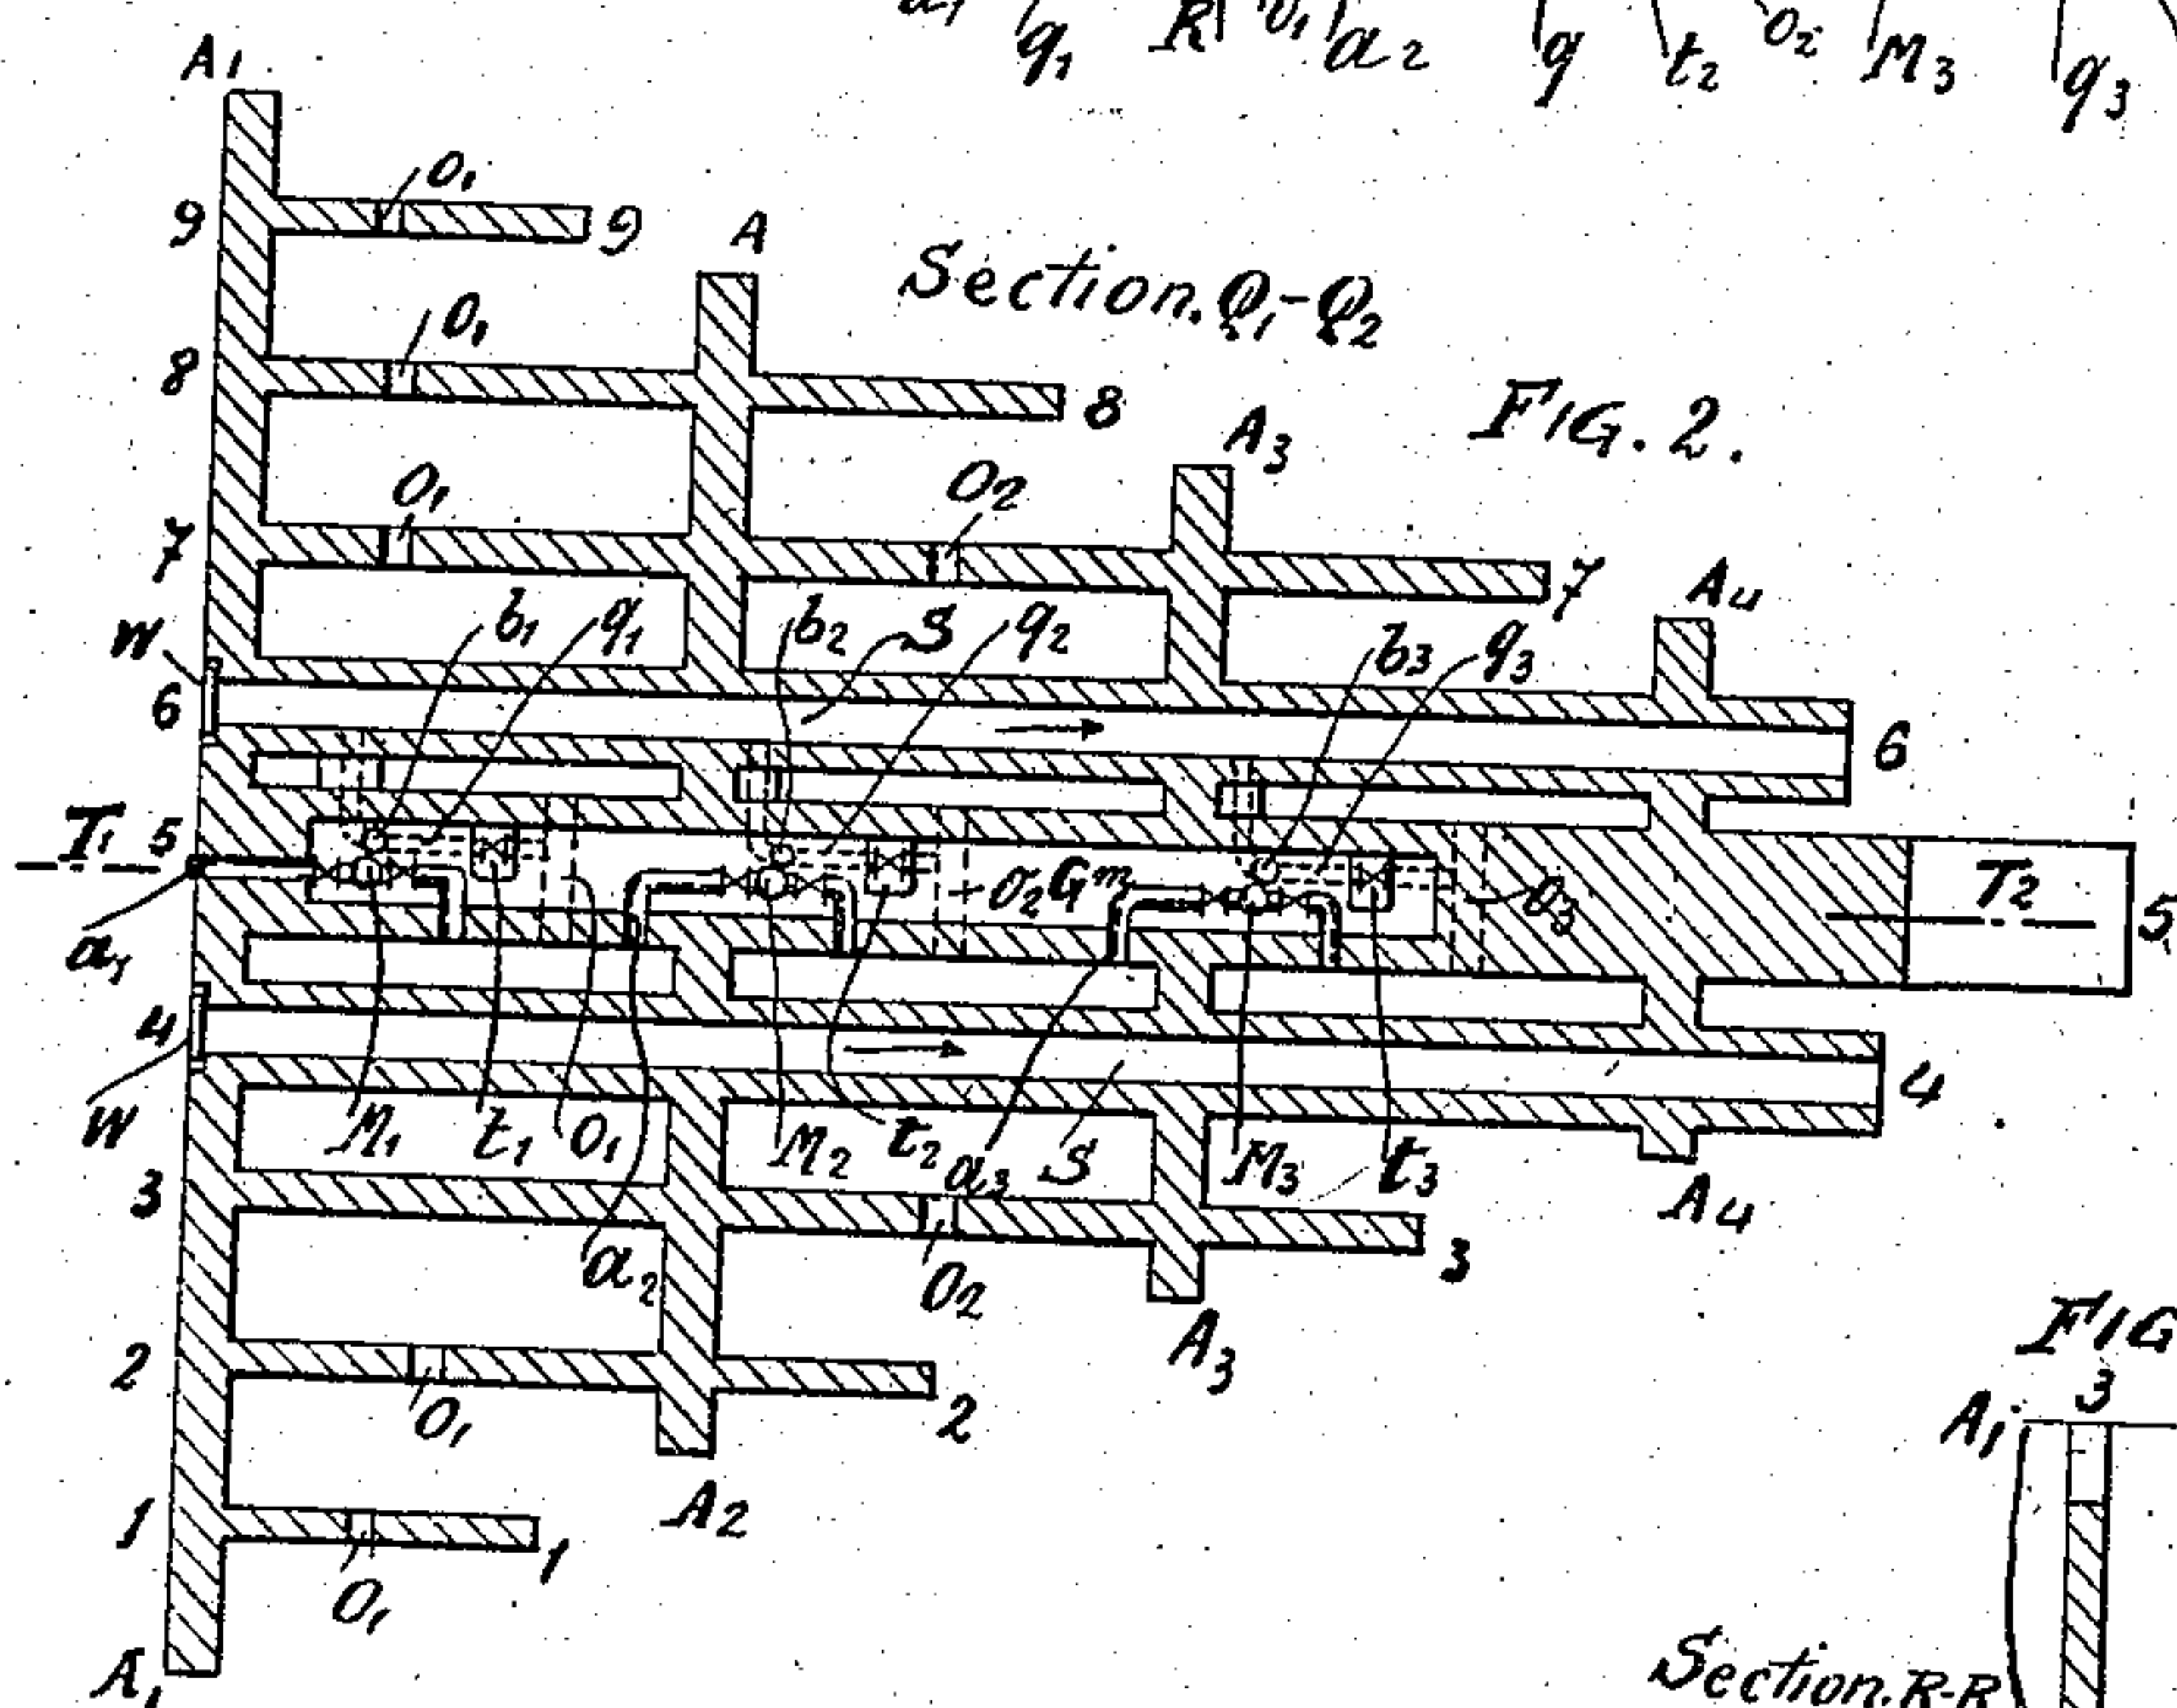 q1 R O1 a2 q t2 O2 M3 q3
A1
O1
9 9 A
Section. Q1-Q2
O1
8 8
FIG. 2.
A3
O1 O2
7 7
A4
W b1 q1 b2 S q2 b3 q3
6 6
T1 5 O2 Gm O3 T2 5
a1
4 4
W M1 t1 O1 M2 t2 a3 S M3 t3
3 A4
a2 O2 3
A3
2 2
O1
A2
1 1
O1
A1
FIG
3
A1
Section. R-R